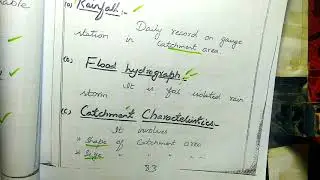 nable
(a) Rainfall :-
Daily record on gauge
station in Catchment area.
(b) Flood hydrograph:-
It is for isolated rain
storm.
(c) Catchment Characteristics:-
It involves
" Shape of Catchment area
" Size " " " -
83